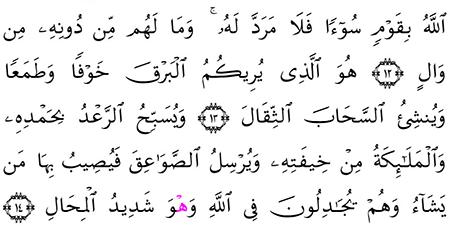 ٱللَّهُ بِقَوۡمٖ سُوٓءٗا فَلَا مَرَدَّ لَهُۥۚ وَمَا لَهُم مِّن دُونِهِۦ مِن
وَالٍ ١٢ هُوَ ٱلَّذِي يُرِيكُمُ ٱلۡبَرۡقَ خَوۡفٗا وَطَمَعٗا
وَيُنشِئُ ٱلسَّحَابَ ٱلثِّقَالَ ١٣ وَيُسَبِّحُ ٱلرَّعۡدُ بِحَمۡدِهِۦ
وَٱلۡمَلَٰٓئِكَةُ مِنۡ خِيفَتِهِۦ وَيُرۡسِلُ ٱلصَّوَٰعِقَ فَيُصِيبُ بِهَا مَن
يَشَآءُ وَهُمۡ يُجَٰدِلُونَ فِي ٱللَّهِ وَهۡوَ شَدِيدُ ٱلۡمِحَالِ ١٤